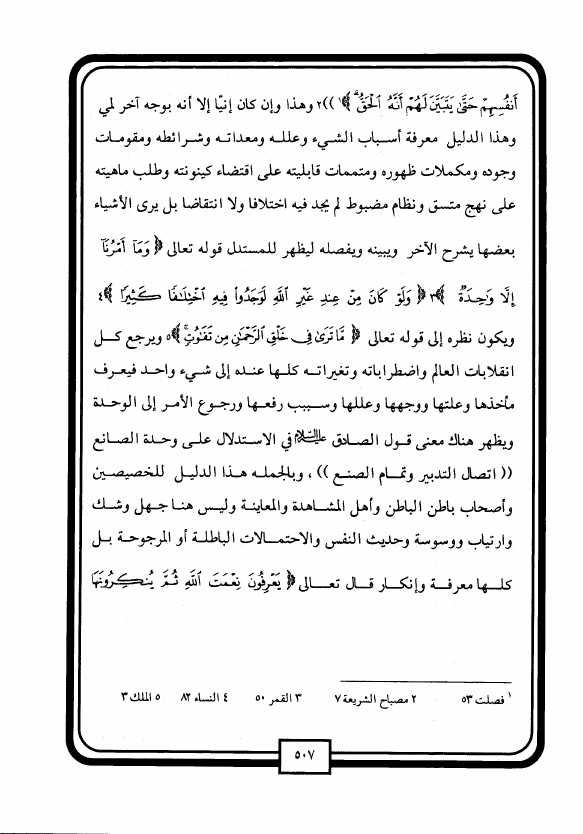 أَنفُسِهِمْ حَتَّىٰ يَتَبَيَّنَ لَهُمْ أَنَّهُ الْحَقُّ ۗ ﴾١ ))٢ وهذا وإن كان إنيّا إلا أنه بوجه آخر لمي
وهذا الدليل معرفة أسباب الشيء وعلله ومعداته وشرائطه ومقومات
وجوده ومكملات ظهوره ومتممات قابليته على اقتضاء كينونته وطلب ماهيته
على نهج متسق ونظام مضبوط لم يجد فيه اختلافا ولا انتقاضا بل يرى الأشياء
بعضها يشرح الآخر ويبينه ويفصله ليظهر للمستدل قوله تعالى ﴿ وَمَا أَمْرُنَا
إِلَّا وَاحِدَةٌ ﴾٣ ﴿ وَلَوْ كَانَ مِنْ عِندِ غَيْرِ اللَّهِ لَوَجَدُوا فِيهِ اخْتِلَافًا كَثِيرًا ﴾٤
ويكون نظره إلى قوله تعالى ﴿ مَّا تَرَىٰ فِي خَلْقِ الرَّحْمَٰنِ مِن تَفَاوُتٍ ۖ ﴾٥ ويرجع كل
انقلابات العالم واضطراباته وتغيراته كلها عنده إلى شيء واحد فيعرف
مأخذها وعلتها ووجهها وعللها وسببب رفعها ورجوع الأمر إلى الوحدة
ويظهر هناك معنى قول الصادق عليه السلام في الاستدلال على وحدة الصانع
(( اتصال التدبير وتمام الصنع )) ، وبالجمله هذا الدليل للخصيصين
وأصحاب باطن الباطن وأهل المشاهدة والمعاينة وليس هنا جهل وشك
وارتياب ووسوسة وحديث النفس والاحتمالات الباطلة أو المرجوحة بل
كلها معرفة وإنكار قال تعالى ﴿ يَعْرِفُونَ نِعْمَتَ اللَّهِ ثُمَّ يُنكِرُونَهَا
١ فصلت ٥٣ ٢ مصباح الشريعة ٧ ٣ القمر ٥٠ ٤ النساء ٨٢ ٥ الملك ٣
٥٠٧